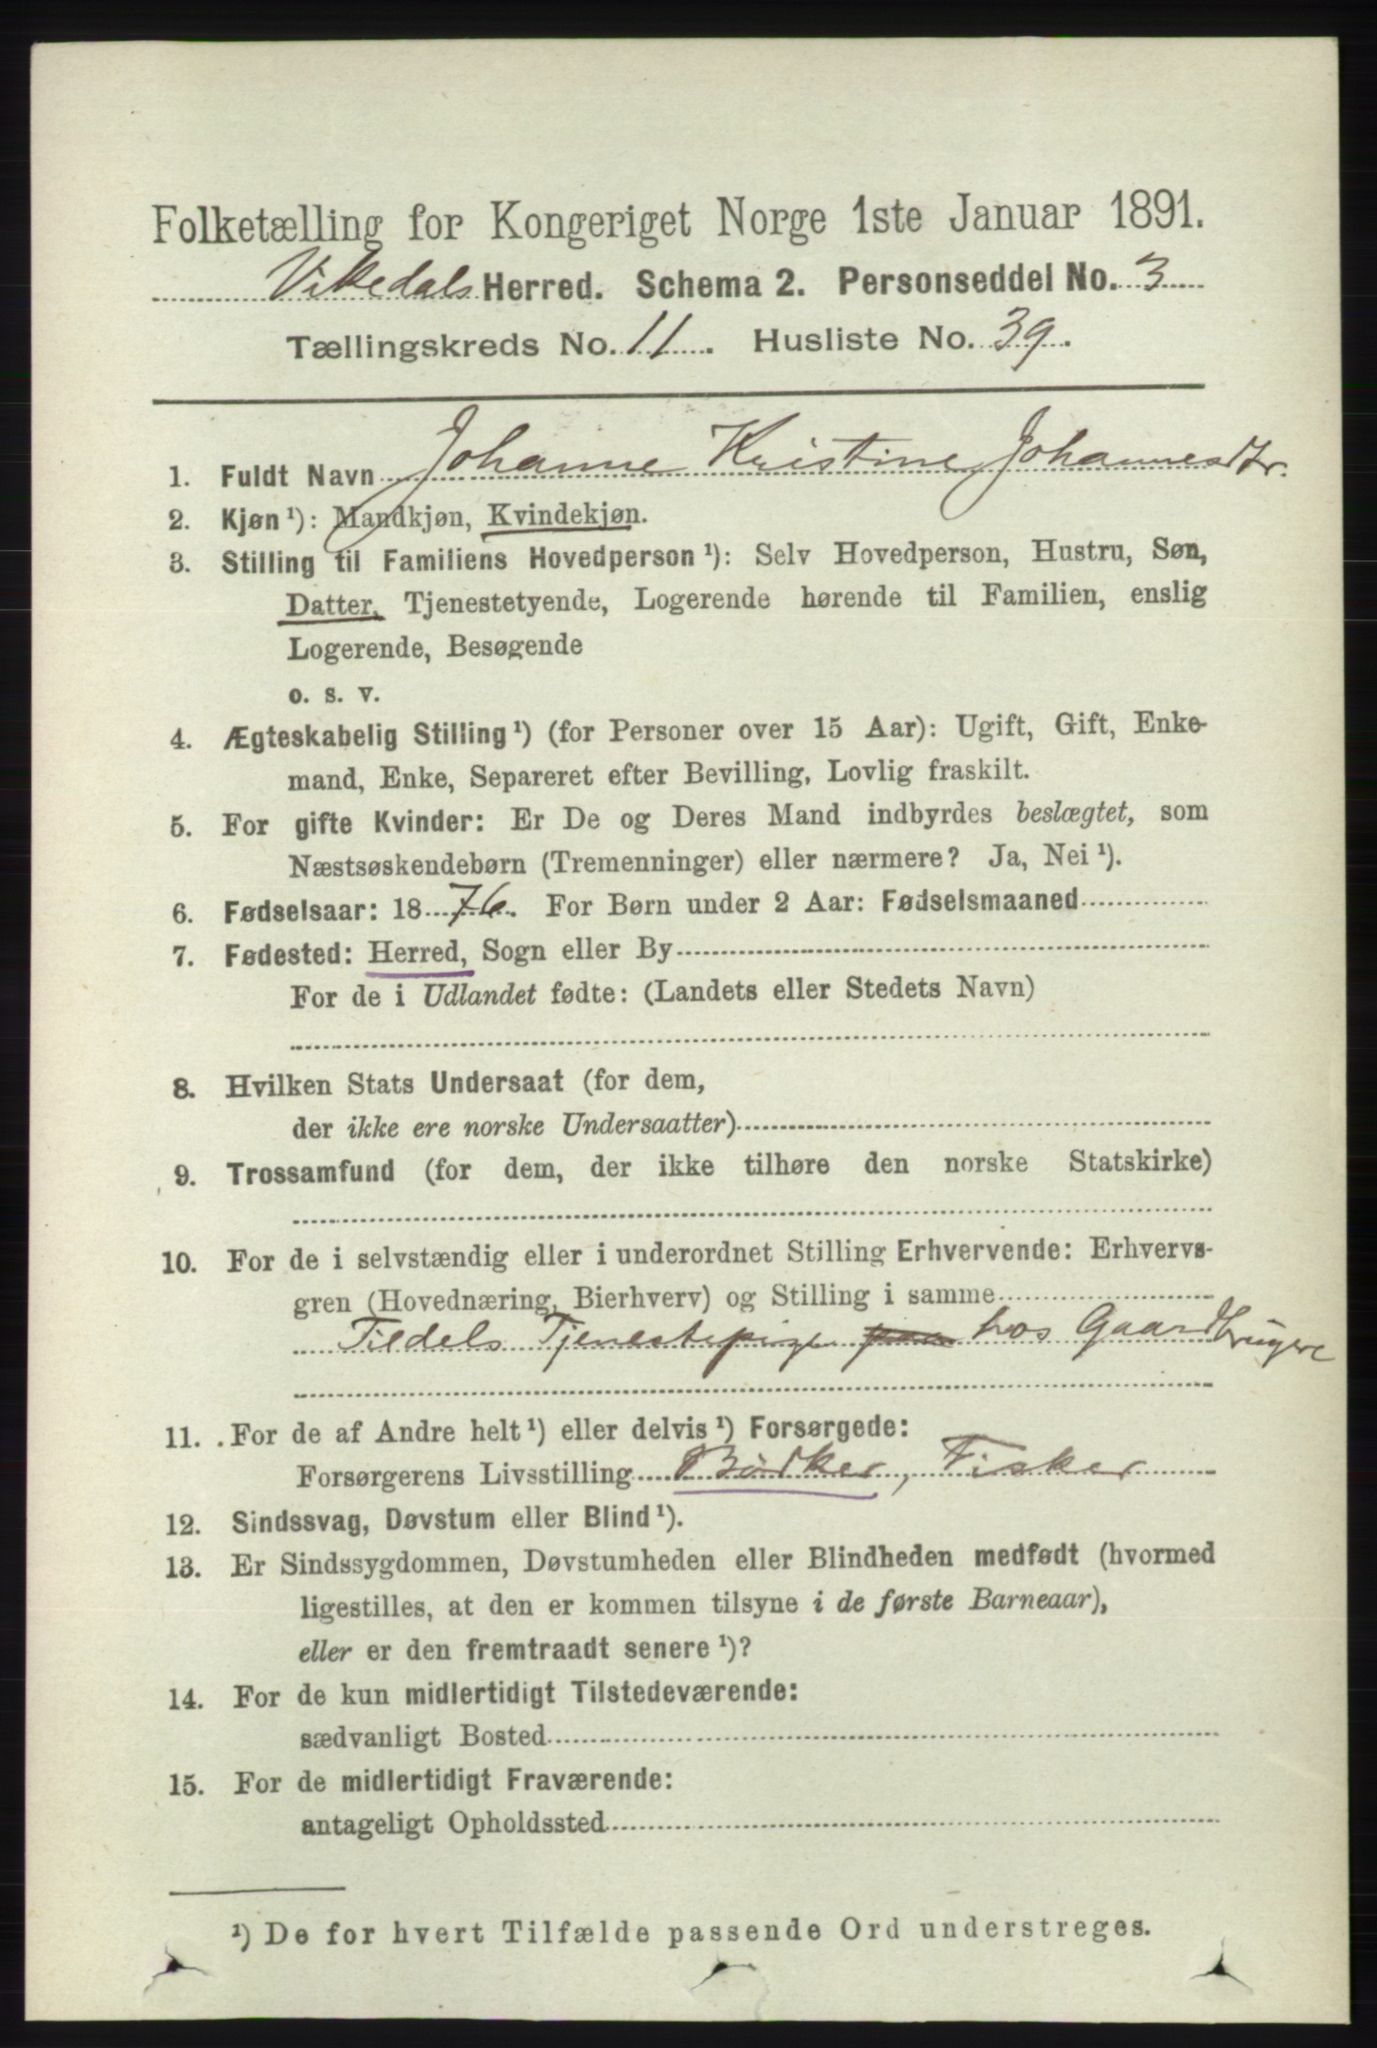 Folketælling for Kongeriget Norge 1ste Januar 1891.
Vikedals Herred. Schema 2. Personseddel No. 3
Tællingskreds No. 11. Husliste No. 39.
1. Fuldt Navn Johanne Kristine Johannesdtr.
2. Kjøn¹): Mandkjøn, Kvindekjøn.
3. Stilling til Familiens Hovedperson¹): Selv Hovedperson, Hustru, Søn,
Datter, Tjenestetyende, Logerende hørende til Familien, enslig
Logerende, Besøgende
o. s. v.
4. Ægteskabelig Stilling¹) (for Personer over 15 Aar): Ugift, Gift, Enke-
mand, Enke, Separeret efter Bevilling, Lovlig fraskilt.
5. For gifte Kvinder: Er De og Deres Mand indbyrdes beslægtet, som
Næstsøskendebørn (Tremenninger) eller nærmere? Ja, Nei¹).
6. Fødselsaar: 1876. For Børn under 2 Aar: Fødselsmaaned
7. Fødested: Herred, Sogn eller By
For de i Udlandet fødte: (Landets eller Stedets Navn)
8. Hvilken Stats Undersaat (for dem,
der ikke ere norske Undersaatter)
9. Trossamfund (for dem, der ikke tilhøre den norske Statskirke)
10. For de i selvstændig eller i underordnet Stilling Erhvervende: Erhvervs-
gren (Hovednæring, Bierhverv) og Stilling i samme
Tildels Tjenestepige paa hos Gaardbrugere
11. For de af Andre helt¹) eller delvis¹) Forsørgede:
Forsørgerens Livsstilling Bødker, Fisker
12. Sindssvag, Døvstum eller Blind¹).
13. Er Sindssygdommen, Døvstumheden eller Blindheden medfødt (hvormed
ligestilles, at den er kommen tilsyne i de første Barneaar),
eller er den fremtraadt senere¹)?
14. For de kun midlertidigt Tilstedeværende:
sædvanligt Bosted
15. For de midlertidigt Fraværende:
antageligt Opholdssted
¹) De for hvert Tilfælde passende Ord understreges.